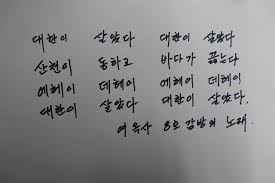 대한이 살았다 대한이 살았다
산천이 동하고 바다가 끓는다
에헤이 데헤이 에헤이 데헤이
대한이 살았다 대한이 살았다.
여옥사 8호 감방의 노래.